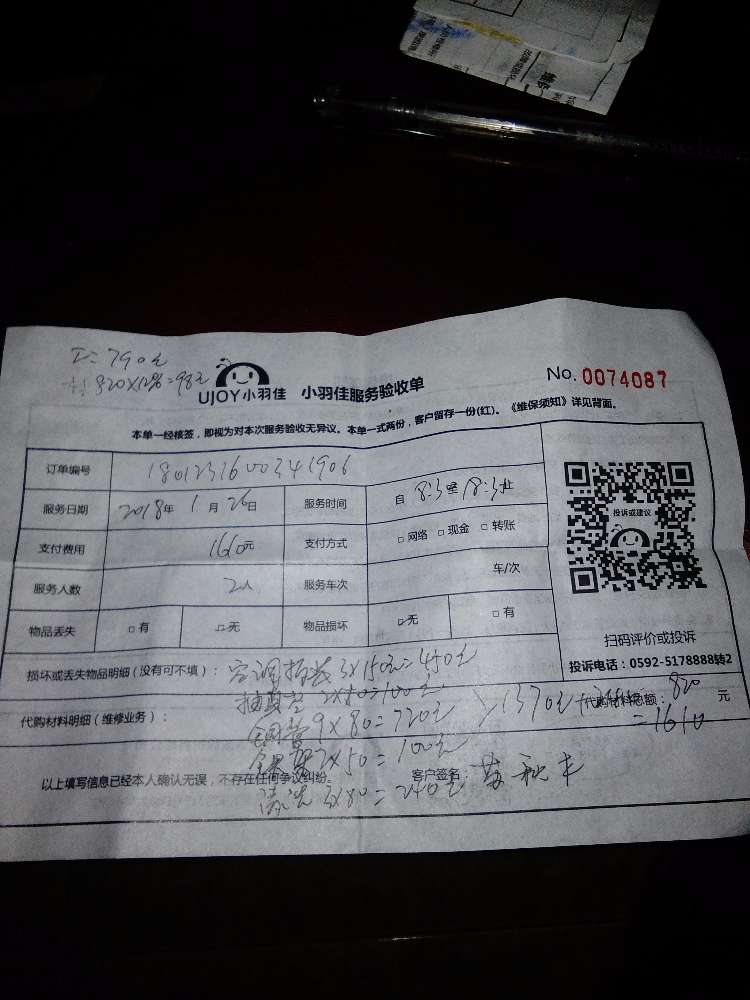 工=790元
820X12%=98元
UJOY小羽佳 小羽佳服务验收单 No.0074087
本单一经核签，即视为对本次服务验收无异议。本单一式两份，客户留存一份(红)。《维保须知》详见背面。
订单编号 1801231600341906
服务日期 2018年1月26日 服务时间 自 8:3至 18:3止
支付费用 1610元 支付方式 □网络 □现金 □转账
服务人数 2人 服务车次 车/次
物品丢失 □有 □无 物品损坏 □无 □有
投诉或建议
扫码评价或投诉
投诉电话：0592-5178888转2
损坏或丢失物品明细（没有可不填）： 空调拆装 3X150元=450元
代购材料明细（维修业务）： 代购材料总额：820元
铜管 9X80=720元 1370元
=1610
2X50=100元
以上填写信息已经本人确认无误，不存在任何争议纠纷。 客户签名：
清洗 3X80=240元